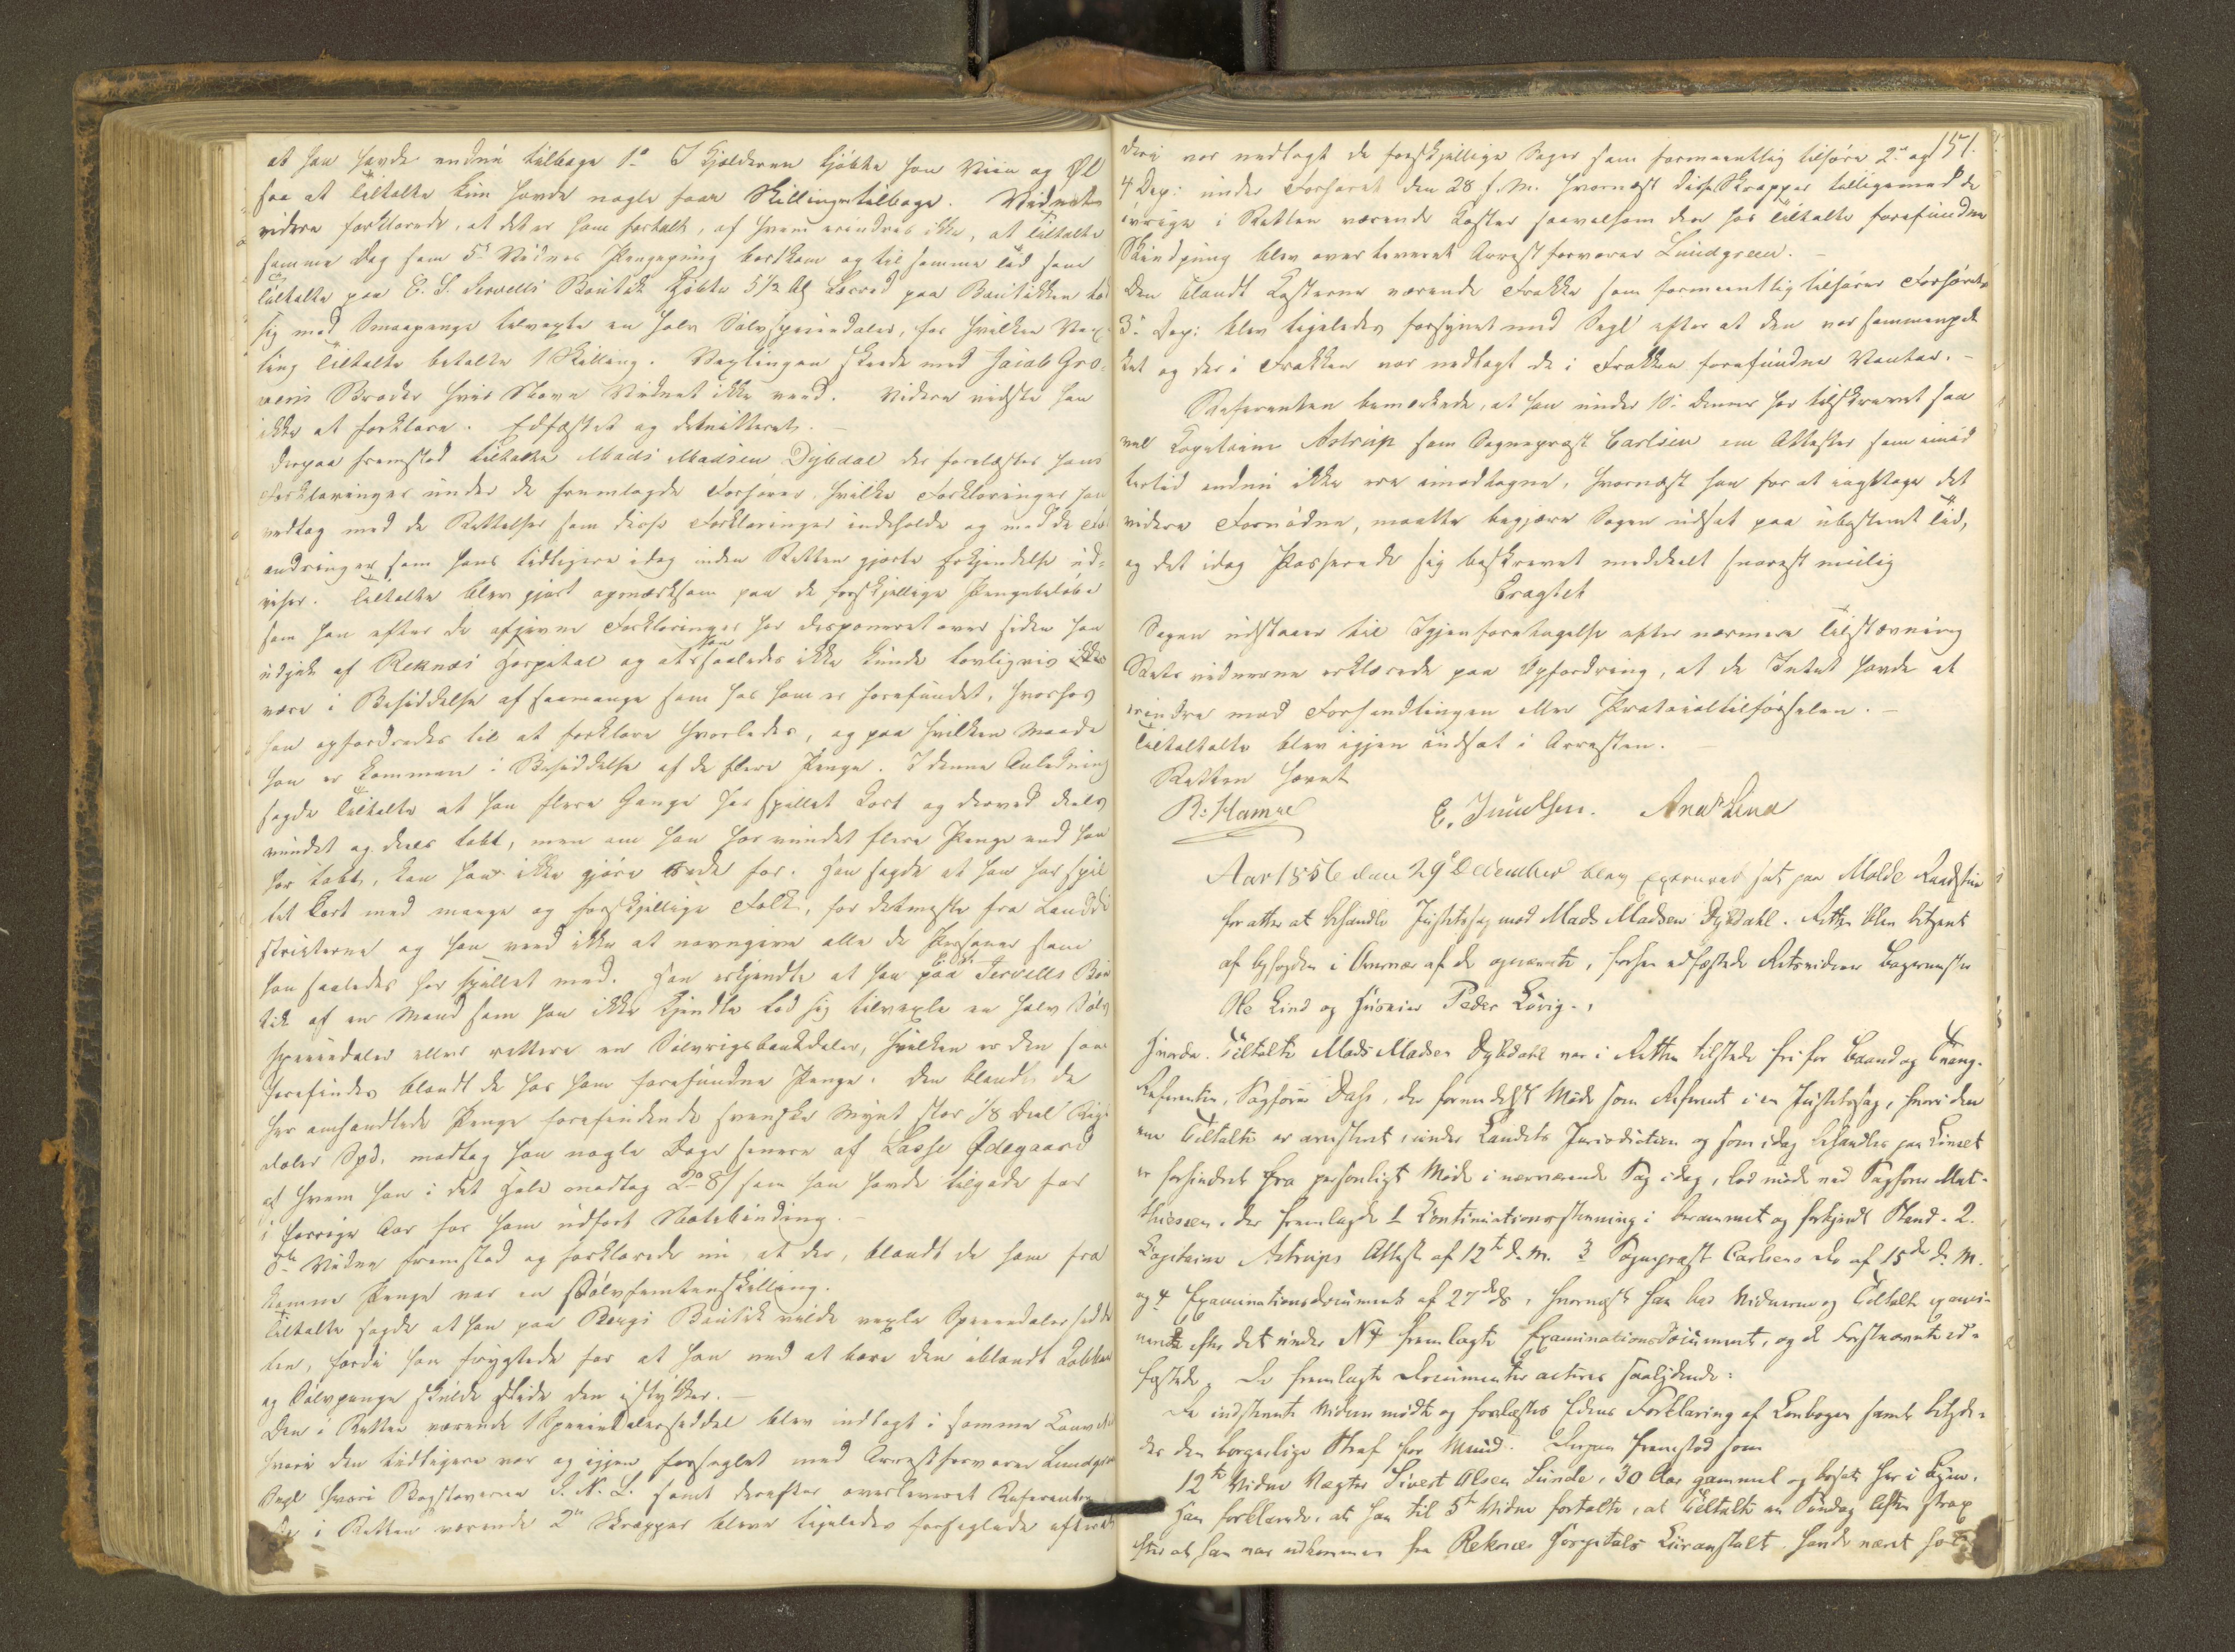 at han havde endnu tilbage 1 I Kjælderen kjøbte han Viin og Øl
saa at Tiltalte kun havde nogle faae Skillinger tilbage. Vidnet
videre forklarede, at det er ham fortalt, af hvem erindres ikke, at Tiltalte
samme Dag som 5 Vidnes Pengepung bortkom og til samme Tid som
Tiltalte paa E. S. Servells Boutik kjøbte 5 1/2 Al paa Boutikken lod
sig med Smaapenge tilvexle en halv Sølvspeciedaler, for hvilken Vex-
ling Tiltalte betalte 1 Skilling. Vexlingen skeede med Jacob Gro-
Broder hvis Navn Vidnet ikke veed. Videre vidste han
ikke at forklare. Edfæstet og demitteret.
Derpaa fremstod Tiltalte Mads Madsen Dybdal der forelæstes hans
Forklaringer under de fremlagde Forhører, hvilke Forklaringer han
vedtog med de Rettelser som disse Forklaringer indeholde og med de For
andringer som hans tidligere idag inden Retten gjorte Erkjendelse ud-
viser. Tiltalte blev gjort opmærksom paa de forskjellige Pengebeløbe
som han efter de afgivne Forklaringer har disponeret over siden han
udgik af Reknæs Hospital og at han saaledes ikke kunde lovligviis
være i Besiddelse af saamange som hos ham er forefundet, hvorfor
han opfordredes til at forklare hvorledes, og paa hvilken Maade
han er kommen i Besiddelse af de flere Penge. I denne Anledning
sagde Tiltalte at han flere Gange har spillet Kort og derved deels
vundet og deels tabt, men om han har vundet flere Penge end han
har tabt, kan han ikke gjøre rede for. Han sagde at han har spil
let Kort med mange og forskjellige Folk, for detmeste fra Landdi
stricterne og han veed ikke at navngive alle de Personer som
han saaledes har spillet med. Han erkjendte at han paa E. S. Servells Bou
tik af en Mand som han ikke kjendte lod sig tilvexle en halv Sølv
speciedaler eller rettere en Sølvrigsbankdaler, hvilken er den som
forefindes blandt de hos ham forefundne Penge. Den blandt de
her omhandlede Penge forefindende svenske Mynt stor 1/8 Deel Rigs
daler Spd. modtog han nogle Dage senere af Lasse Ødegaard
af hvem han i det Hele modtog 2 8 som han havde tilgode for
i forrige Aar for ham udført Notebinding.
8de Vidne fremstod og forklarede nu at der, blandt de ham fra
komne Penge var en Sølvfemtenskilling.
Tiltalte sagde at han paa Bergs Boutik vilde vexle Speciedalersedde
len, fordi han frygtede for at han ved at bære den iblandt Kobber
og Sølvpenge skulde slide den istykker.
Den i Retten værende 1 Speciedalerseddel blev indlagt i samme Convolut
hvori den tidligere var og igjen forseglet med Arrestforvarer Lundgrens
Segl hvori Bogstaverne S. N. L. samt derefter overleveret Referenten
De i Retten værende 2 Skrapper bleve ligeledes forseglede efterat
151.
deri var nedlagt de forskjellige Sager som formeentlig tilhøre 2 og
4 Dep: under Forhøret den 28 f. M. hvornæst disse Skrapper tilligemed de
øvrige i Retten værende Koster saavelsom den hos Tiltalte forefundne
Skindpung blev overleveret Arrestforvarer Lundgreen.
Den blandt Kosterne værende Frakke som formeentlig tilhører Forhørets
3 Dep: blev ligeledes forsynet med Segl efter at den var sammenpak
ket og der i Frakken var nedlagt de i Frakken forefundne Vanter.
Referenten bemærkede, at han under 10 dennes har tilskrevet saa
vel Capitaine Astrup som Sognepræst Carlsen om Attester som imid
lertid endnu ikke ere imodtagne, hvornæst han for at iagttage det
videre Fornødne, maatte begjære Sagen udsat paa ubestemt Tid,
og det idag Passerede sig beskrevet meddeelt snarest mulig
Eragtet
Sagen udstaaer til Igjenforetagelse efter nærmere Tilstævning
Retsvidnerne erklærede paa Opfordring, at de Intet havde at
erindre mod Forhandlingen eller Protocoltilførselen.
Tiltaltalte blev igjen indsat i Arresten.
Retten hævet
E. Knudsen. Lind
Aar 1856 den 29de December blev Extraret sat paa Molde Raadstue
for atter at behandle Justitssag mod Mads Madsen Dybdahl. Retten blev betjent
af Byfogden i Overvær af de opnævnte, forhen edfæstede Retsvidner Bagermester
Ole Lind og Huuseier Peder Løvig.
Hvorda. Tiltalte Mads Madsen Dybdahl var i Retten tilstede fri for Baand og Tvang.
Referenten, Sagfører Dahl, der formedelst Møde som Referent i en Justitssag, hvori den
ene Tiltalte er arresteret, under Landets Jurisdiction og som idag behandles paa
er forhindret fra personligt Møde i nærværende Sag idag, lod møde ved Sagfører Mat-
thiesen, der fremlagde 1 Continuationsstevning i berammet og forkyndt Stand. 2.
Capitaine Astrups Attest af 12te d. M. 3 Sognepræst Carlsens do af 15de d. M.
og 4 Examinationsdocument af 27de ds, hvornæst han bad Vidnerne og Tiltalte exami-
nerede efter det under N 4 fremlagte Examinationsdocument, og de Førstnævnte ed-
fæstede. De fremlagte Documenter acteres saalydende:
De indstevnte Vidner mødte og forelæstes Edens Forklaring af Lovbogen samt betyde-
des den borgerlige Straf for Meeneed. Derpaa fremstod som
12te Vidne Vægter Sivert Olsen Lunde, 30 Aar gammel og bosat her i Byen.
Han forklarede, at han til 5te Vidne fortalte, at Tiltalte en Søndag Aften strax
efter at han var udkommen fra Reknes Hospitals Curanstalt havde været hos